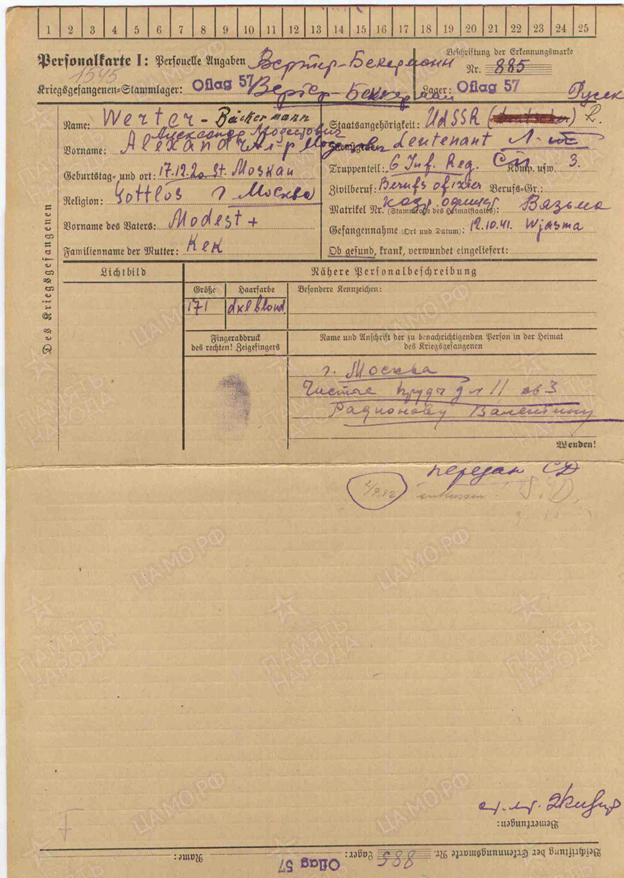 1 2 3 4 5 6 7 8 9 10 11 12 13 14 15 16 17 18 19 20 21 22 23 24 25
Personalkarte I: Personelle Angaben
Вертер-Бекерманн
Beschriftung der Erkennungsmarke
Nr. 885
1545
Kriegsgefangenen-Stammlager: Oflag 57
Вертер-Бекерман
Lager: Oflag 57
Русск
Des Kriegsgefangenen
Name: Werter-Bäckermann
Staatsangehörigkeit: UdSSR R.
Александр Модестович
Vorname: Alexander
Leutenant Л-т
Truppenteil: 6 Inf. Reg. СП Komp. usw. 3.
Geburtstag und -ort: 17.12.20. St. Moskau
Zivilberuf: Berufsofizier Berufs-Gr.:
Religion: Gottlos г. Москва
кадр. офицер Вязьма
Matrikel Nr. (Stammrolle des Heimatstaates):
Vorname des Vaters: Modest +
Gefangennahme (Ort und Datum): 12.10.41. Wjasma
Familienname der Mutter: Кек
Ob gesund, krank, verwundet eingeliefert:
Lichtbild
Nähere Personalbeschreibung
Größe Haarfarbe Besondere Kennzeichen:
171 dklblond
Fingerabdruck
des rechten! Zeigefingers
Name und Anschrift der zu benachrichtigenden Person in der Heimat
des Kriegsgefangenen
г. Москва
Чистые пруды д 11 кв 3
Радионову Валентину
Wenden!
передан СД
S.D.
ЦАМО.РФ
ПАМЯТЬ
НАРОДА
Bemerkungen:
Beschriftung der Erkennungsmarke Nr. 885 Lager: Oflag 57 Name: